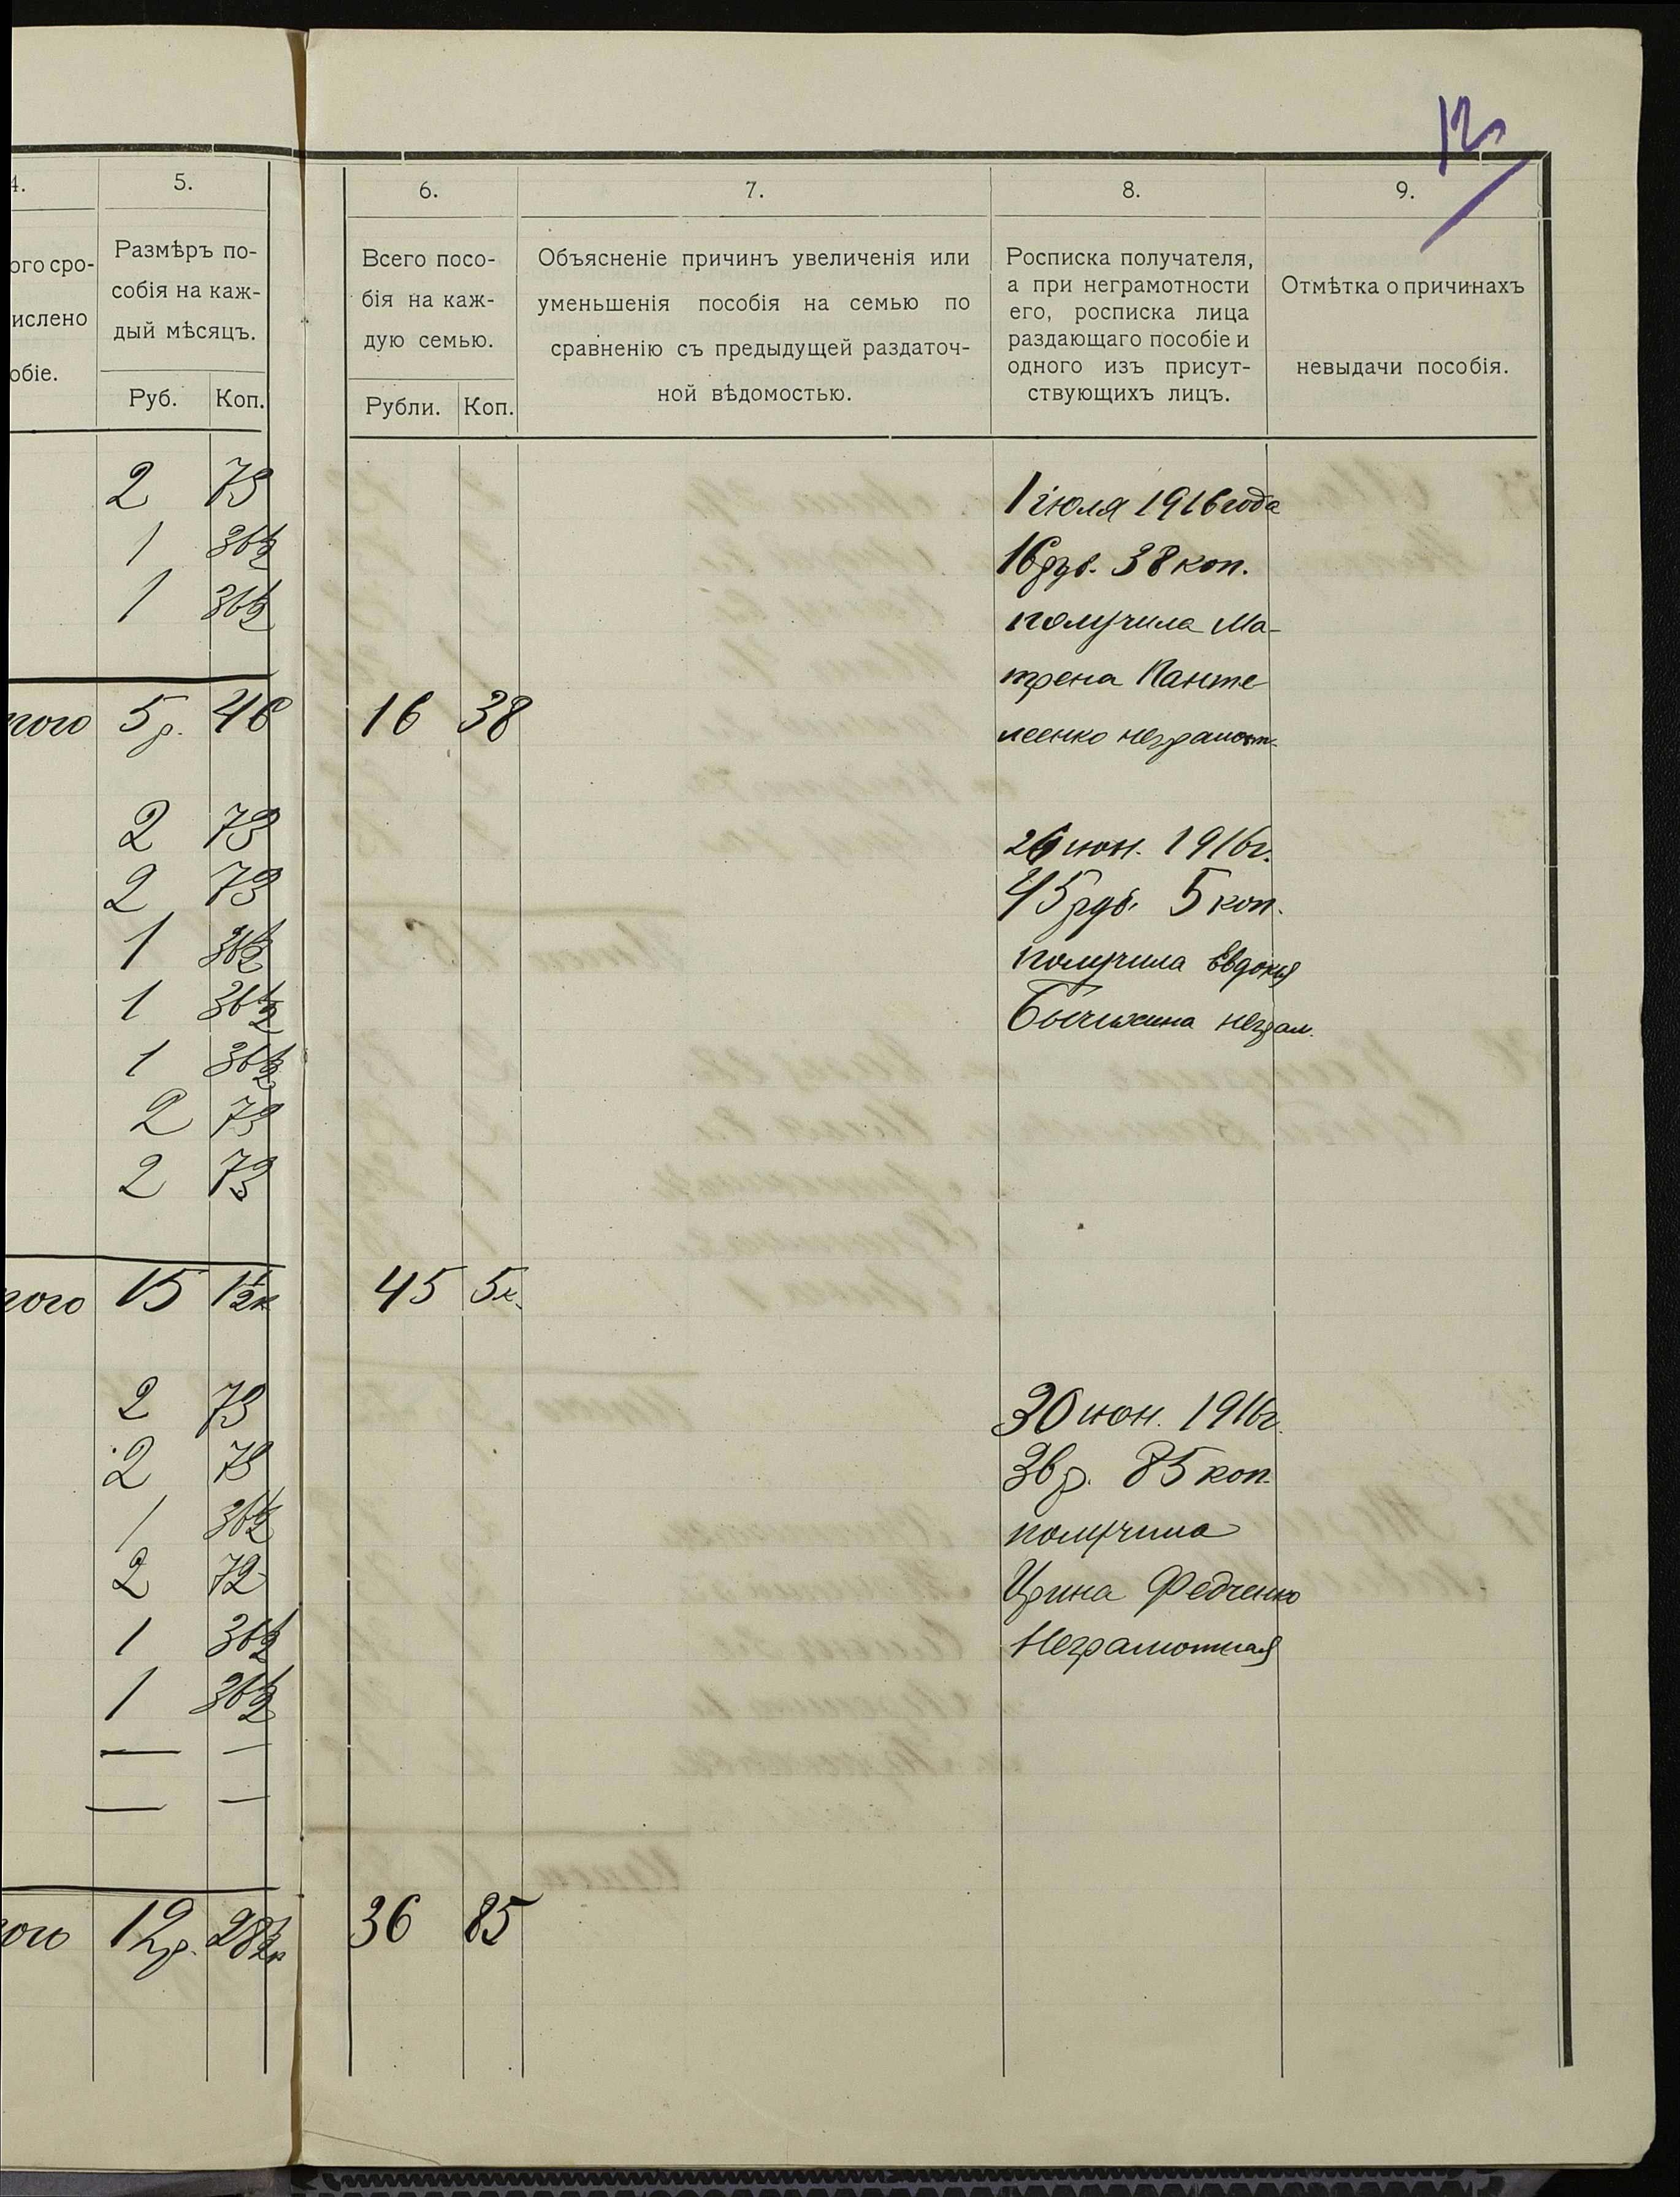 12
4. 5. 6. 7. 8. 9.
ого сро-
ислено
обіе.
Размѣръ по-
собія на каж-
дый мѣсяцъ.
Руб. Коп.
Всего посо-
бія на каж-
дую семью.
Рубли. Коп.
Объясненіе причинъ увеличенія или
уменьшенія пособія на семью по
сравненію съ предыдущей раздаточ-
ной вѣдомостью.
Росписка получателя,
а при неграмотности
его, росписка лица
раздающаго пособіе и
одного изъ присут-
ствующихъ лицъ.
Отмѣтка о причинахъ
невыдачи пособія.
2 73 1 іюля 1916 года
1 36½ 16 руб. 38 коп.
1 36½ получила Ма-
трена Панте-
того 5р. 46 16 38 леенко неграмотн.
2 73 26 июн. 1916г.
2 73 45 руб. 5 коп.
1 36½ получила Евдокія
1 36½ Бычихина неграм.
1 36½
2 73
2 73
того 15 1½к 45 5к.
2 73 30 июн. 1916г.
2 73 36 р. 85 коп.
1 36½ получила
2 72 Ирина Федченко
1 36½ Неграмотная
1 36½
— —
— —
ого 12р. 28½к 36 85